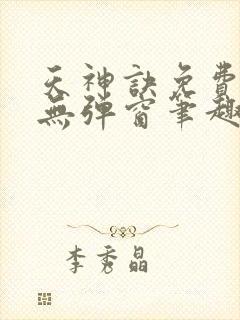 天神訣免費
無彈窗筆趣
李秀晶